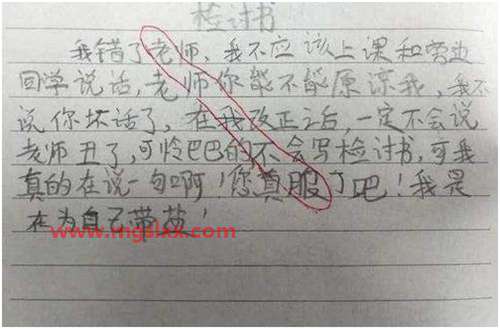 检讨书
我错了老师，我不应该上课和旁边
同学说话，老师你能不能原谅我，我不
说你坏话了，在我改正之后，一定不会说
老师丑了，可怜巴巴的不会写检讨书，可我
真的在说一句啊！您真服了吧！我是
在为自己带
www.mgslxx.com